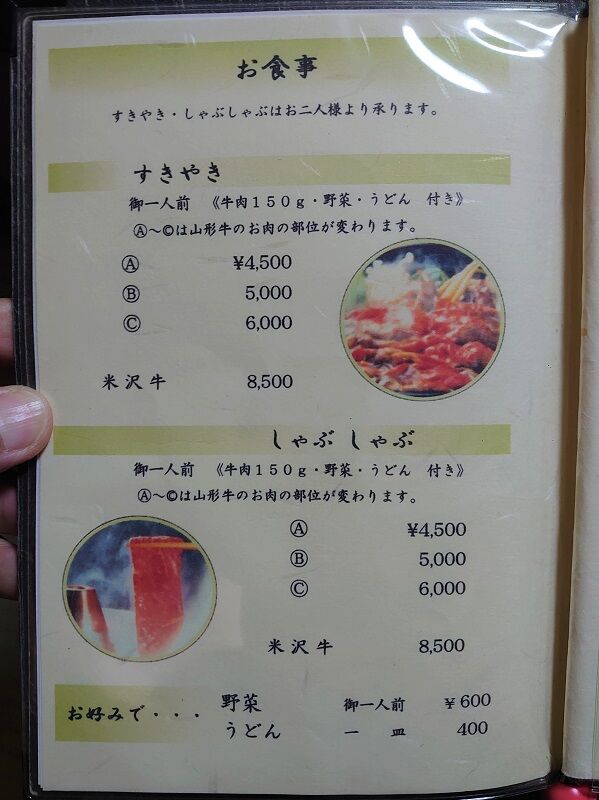 お食事
すきやき・しゃぶしゃぶはお二人様より承ります。
すきやき
御一人前　《牛肉１５０ｇ・野菜・うどん　付き》
Ⓐ～Ⓒは山形牛のお肉の部位が変わります。
Ⓐ　¥4,500
Ⓑ　5,000
Ⓒ　6,000
米沢牛　8,500
しゃぶしゃぶ
御一人前　《牛肉１５０ｇ・野菜・うどん　付き》
Ⓐ～Ⓒは山形牛のお肉の部位が変わります。
Ⓐ　¥4,500
Ⓑ　5,000
Ⓒ　6,000
米沢牛　8,500
お好みで・・・　野菜　御一人前　¥600
うどん　一　皿　400